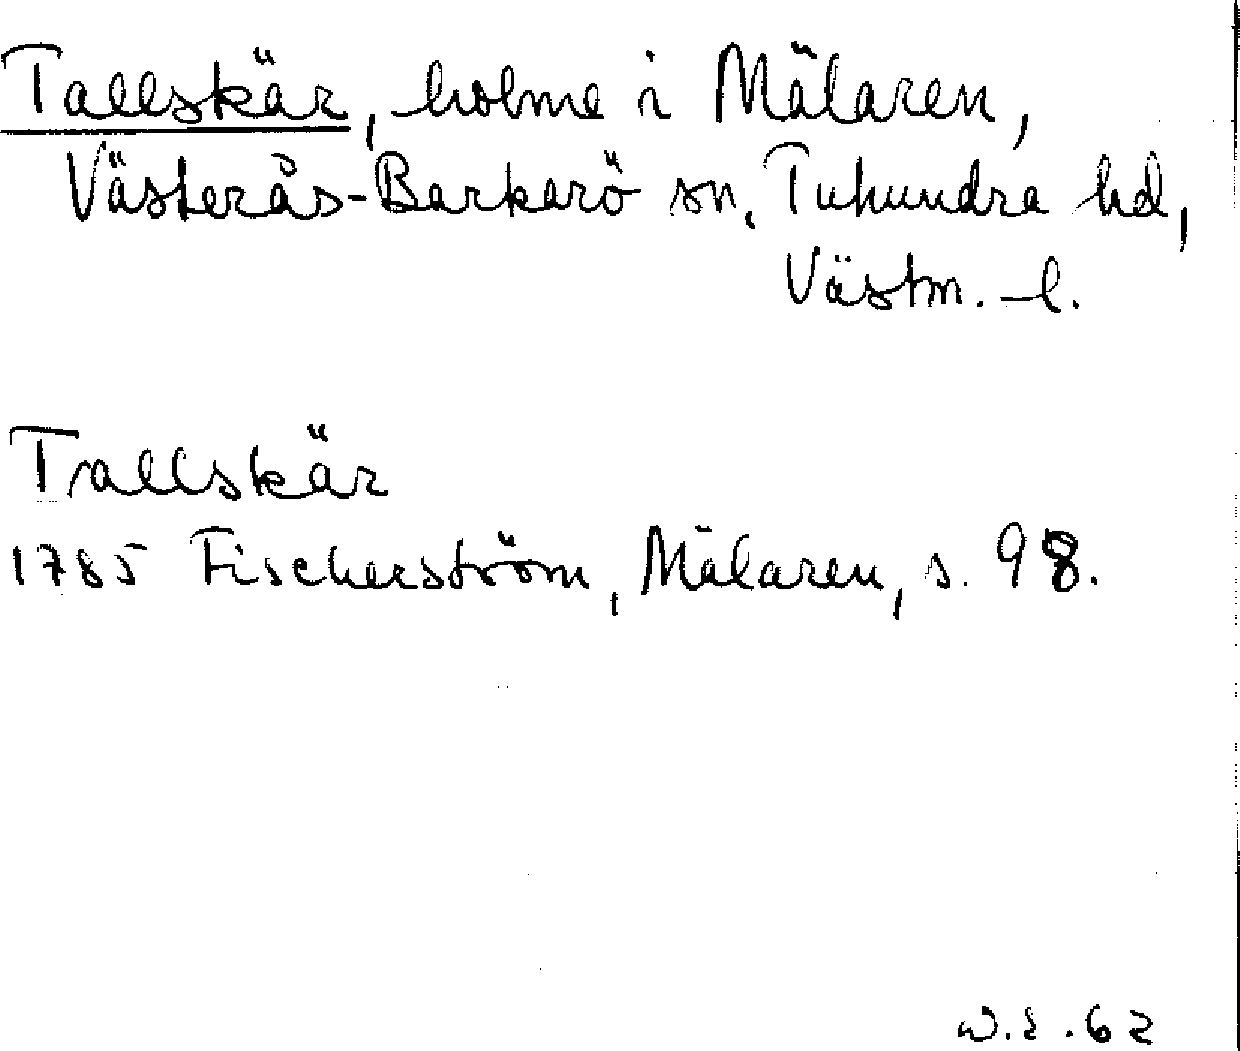 Tallskär, holme i Mälaren,
Västerås-Barkarö sn, Tuhundra hd,
Västm. l.
Tallskär
1785 Fischerström, Mälaren, s. 98.
62